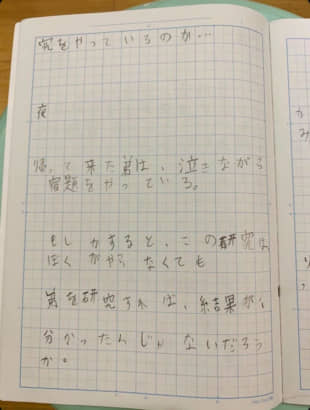 究をやっているのか…
夜
帰って来た弟は、泣きながら
宿題をやっている。
もしかすると、この研究は
ぼくがやらなくても
弟を研究すれば、結果が、
分かったんじゃないだろう
か。